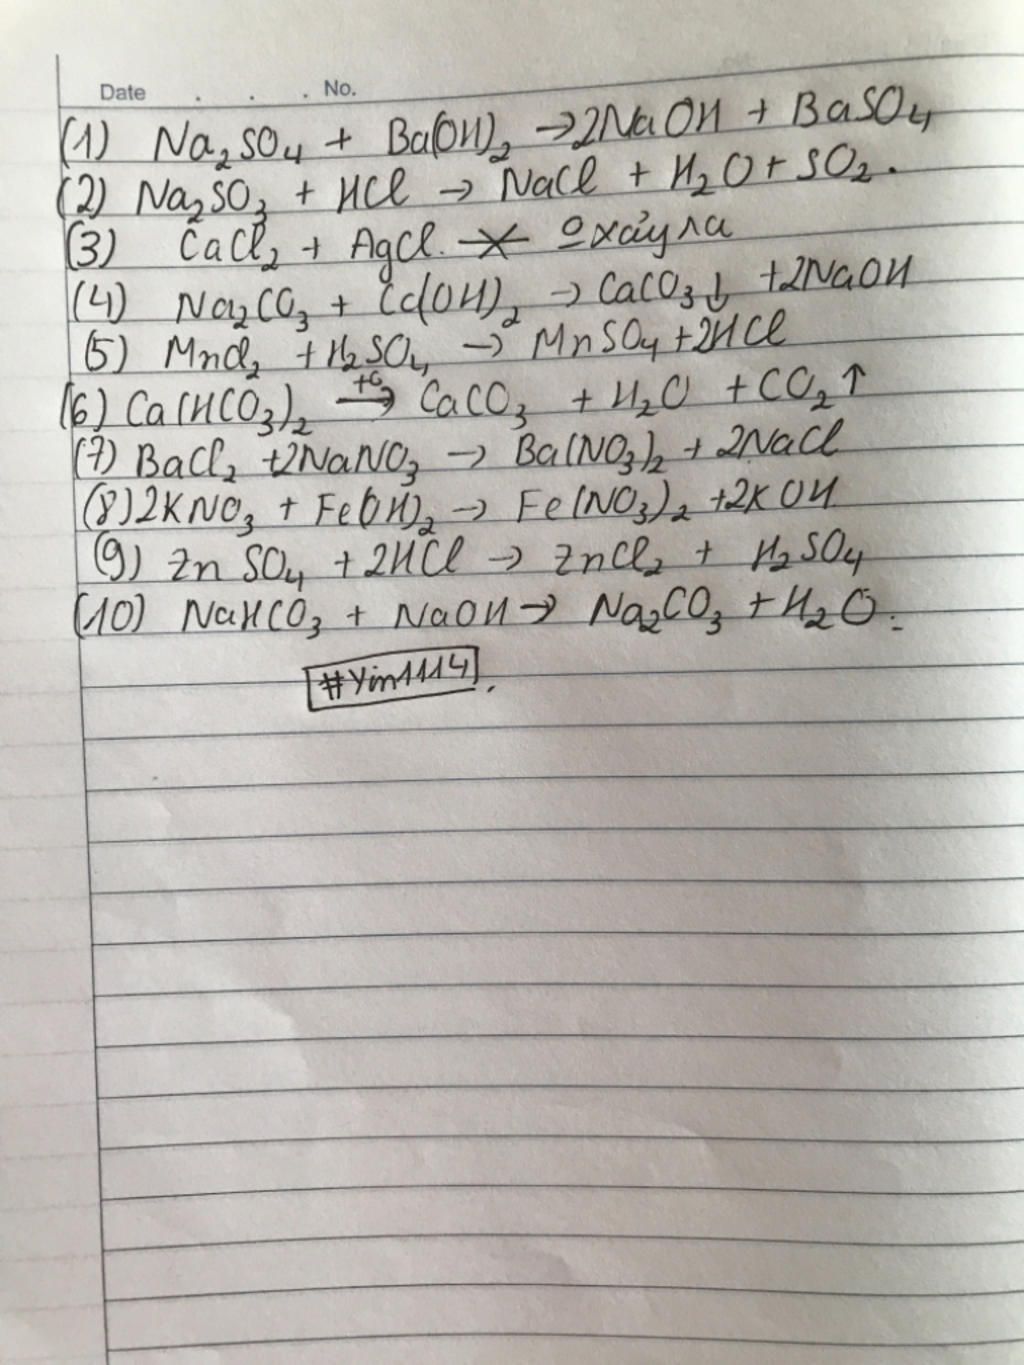 Date . . . No.
(1) Na₂SO₄ + Ba(OH)₂ → 2NaOH + BaSO₄
(2) Na₂SO₃ + HCl → NaCl + H₂O + SO₂.
(3) CaCl₂ + AgCl
(4) Na₂CO₃ + Cc(OH)₂ → CaCO₃↓ + 2NaOH
(5) MnCl₂ + H₂SO₄ → MnSO₄ + 2HCl
(6) Ca(HCO₃)₂ → CaCO₃ + H₂O + CO₂↑
(7) BaCl₂ + 2NaNO₃ → Ba(NO₃)₂ + 2NaCl
(8) 2KNO₃ + Fe(OH)₂ → Fe(NO₃)₂ + 2KOH
(9) ZnSO₄ + 2HCl → ZnCl₂ + H₂SO₄
(10) NaHCO₃ + NaOH → Na₂CO₃ + H₂O.
#Yin1114.